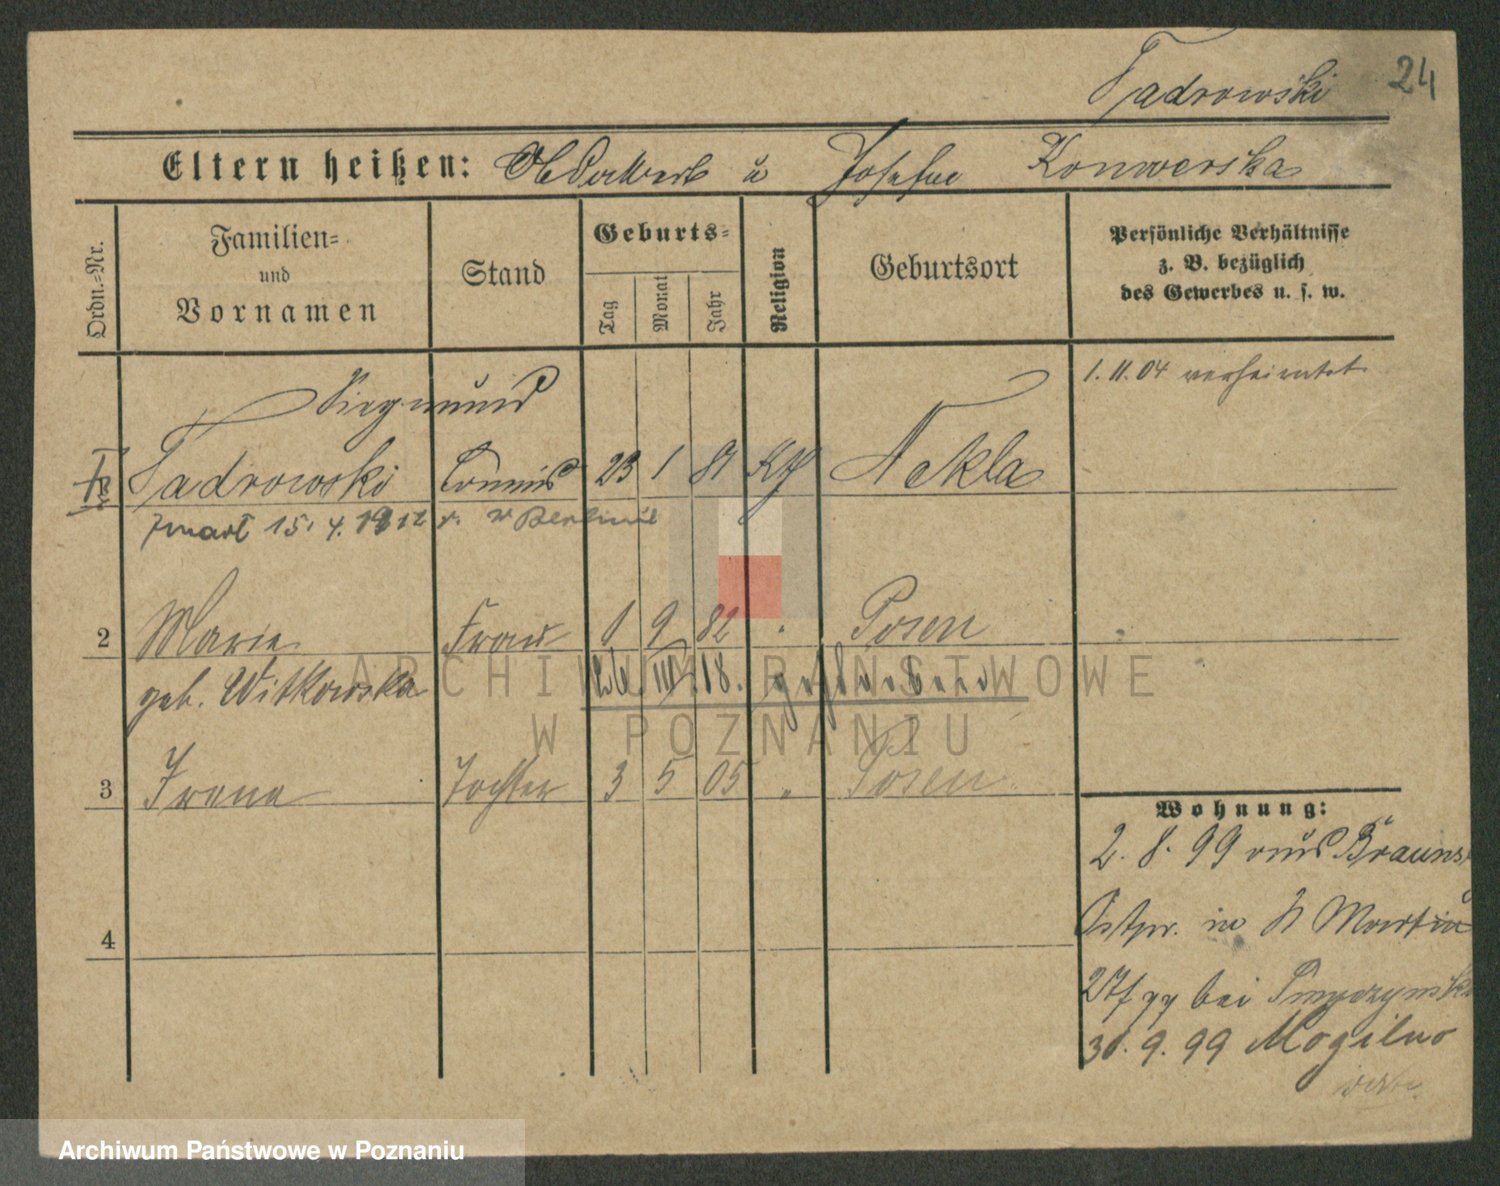 24
Tadrowski
Eltern heißen: Adalbert u Josefa Konwerska
Ordn.-Nr.
Familien-
und
Vornamen
Stand
Geburts-
Tag
Monat
Jahr
Religion
Geburtsort
Persönliche Verhältnisse
z. B. bezüglich
des Gewerbes u. s. w.
1.11.04 verheiratet
Siegmund
Tadrowski Commis 23 1 81 Kth Nekla
zmarł 15. 4. 1912 r. w Berlinie
2 Marie Frau 1 9 82 " Posen
geb. Witkowska 26. III. 18. gestorben
3 Irena Tochter 3 5 05 " Posen
4
Wohnung:
2. 8. 99 aus Brauns
Ostpr. in St Martin
27/ bei
30. 9. 99 Mogilno
ARCHIWUM PAŃSTWOWE
W POZNANIU
Archiwum Państwowe w Poznaniu